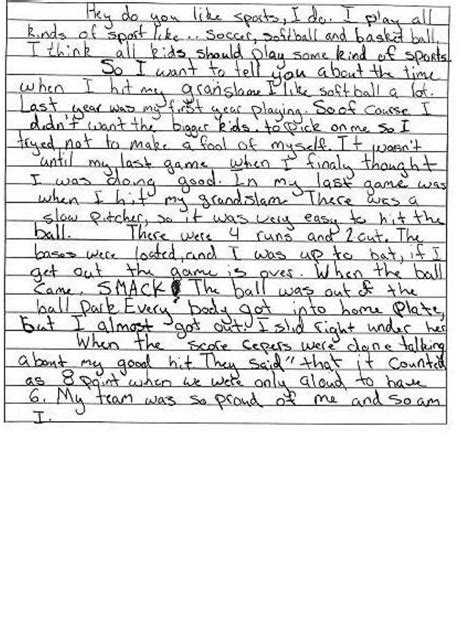 Hey do you like sports, I do. I play all
kinds of sport like... soccer, softball and basket ball.
I think all kids should play some kind of sports.
So I want to tell you about the time
when I hit my granslame I like softball a lot.
Last year was my first year playing. So of course I
didn't want the bigger kids. to pick on me so I
tryed not to make a fool of myself. It wasn't
until my last game when I finaly thought
I was doing good. In my last game was
when I hit my grandslam. There was a
slow pitcher, so it was very easy to hit the
ball. There were 4 runs and 2 out. The
bases were loated, and I was up to bat, if I
get out the game is over. When the ball
came, SMACK The ball was out of the
ball park Every body got into home plate,
but I almost got out. I slid right under her
When the score cepers were done talking
about my good hit They said "that it counted
as 8 point when we were only aloud to have
6. My team was so proud of me and so am
I.